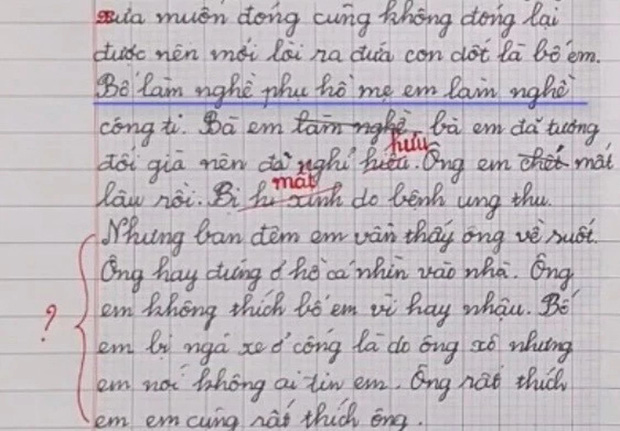 xưa muốn đóng cũng không đóng lại
được nên mới lòi ra đứa con dốt là bố em.
Bố làm nghề phụ hồ mẹ em làm nghề
công ti. Bà em làm nghề, bà em đã tương
hưu
đối già nên đã nghỉ hiểu. Ông em chết mất
mất
lâu rồi. Bị hi xinh do bệnh ung thu.
Nhưng ban đêm em vẫn thấy ông về suốt.
Ông hay đứng ở hồ cá nhìn vào nhà. Ông
? em không thích bố em vì hay nhậu. Bố
em bị ngã xe ở cổng là do ông xô nhưng
em nói không ai tin em. Ông rất thích
em em cũng rất thích ông.